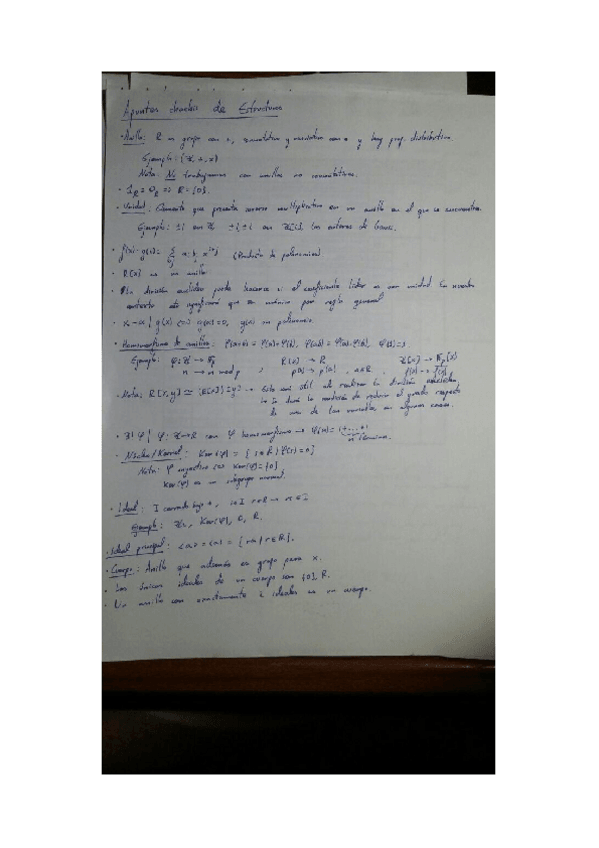 Apuntes de Estructuras
· Anillo: R es grupo con +, asociativa y conmutativa con · y hay prop. distributiva
Ejemplo: (ℤ, +, ×)
Nota: No trabajaremos con anillos no conmutativos.
· 1_R = 0_R => R = {0}.
· Unidad: Elemento que presenta inverso multiplicativo en un anillo en el que se encuentra.
Ejemplo: ±1 en ℤ ±1, ±i en ℤ[i], los enteros de Gauss.
· f(x)·g(x) = Σ a_i b_j x^{i+j} (Producto de polinomios)
· R[x] es un anillo
· La división euclídea puede hacerse si el coeficiente líder es una unidad. En nuestro
contexto esto significará que es mónico por regla general
· x-α | g(x) <=> g(α)=0, g(x) un polinomio.
· Homomorfismo de anillos: φ(a+b) = φ(a)+φ(b), φ(ab) = φ(a)·φ(b), φ(1)=1
Ejemplo: φ: ℤ → 𝔽_p R[x] → R ℤ[x] → 𝔽_p[x]
n → n mod p ; p(x) → p(a), a∈R. f(x) → f(x)
· Nota: R[x,y] ≃ (R[x])[y] → Esto será útil al realizar la división euclídea,
de una de las variables en algunos casos.
· ∃! φ | φ: ℤ → R con φ homomorfismo → φ(n) = 1+...+1
n términos
· Núcleo/Kernel: Ker(φ) = {r∈R | φ(r)=0}
Nota: φ inyectiva <=> Ker(φ) = {0}
Ker(φ) es un subgrupo normal.
· Ideal: I cerrado bajo +, i∈I r∈R → ri ∈ I
Ejemplo: Ker(φ), 0, R.
· Ideal principal: <a> = (a) = {ra / r∈R}.
· Cuerpo: Anillo que además es grupo para ×.
· Los únicos ideales de un cuerpo son {0}, R.
· Un anillo con exactamente 2 ideales es un cuerpo.